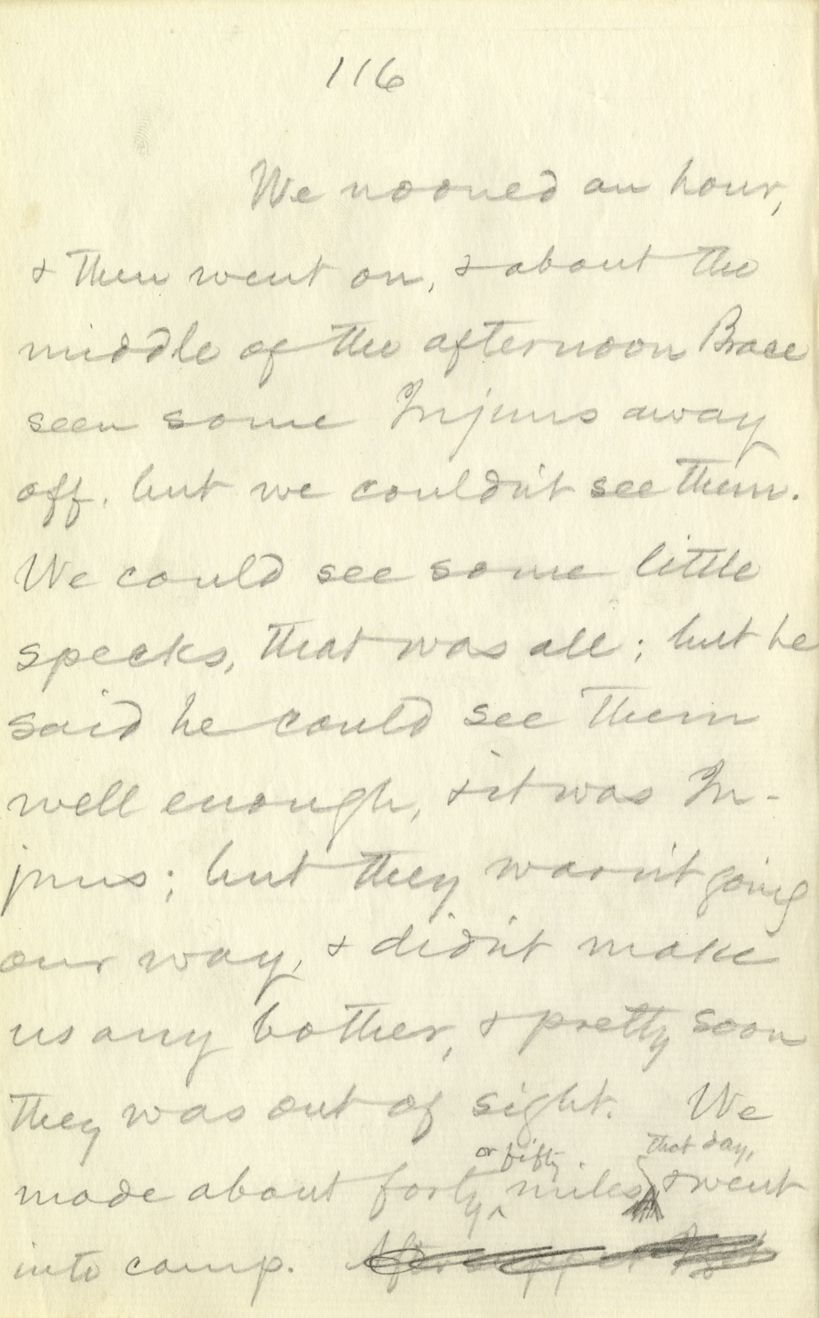 116
We nooned an hour,
& then went on, & about the
middle of the afternoon Brace
seen some Injuns away
off, but we couldn't see them.
We could see some little
specks, that was all; but he
said he could see them
well enough, & it was In-
juns; but they warn't going
our way, & didn't make
us any bother, & pretty soon
they was out of sight. We
or fifty that day,
made about forty miles & went
into camp. After supper